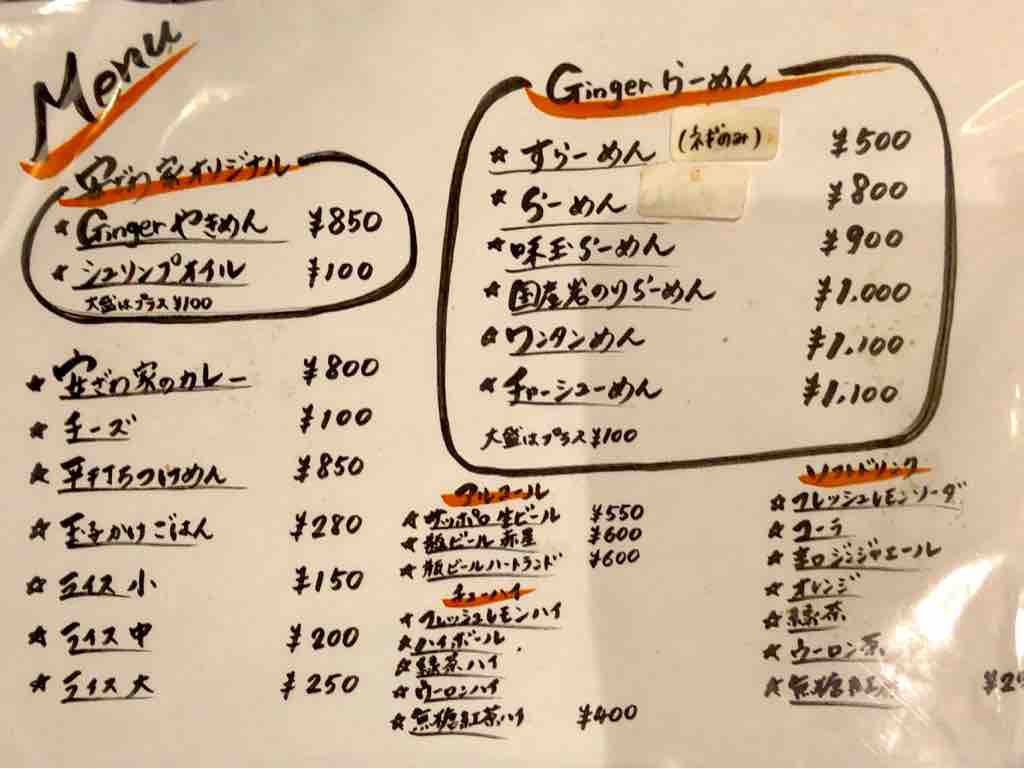 Menu
安ざわ家オリジナル
★ Gingerやきめん ¥850
★ シュリンプオイル ¥100
大盛はプラス¥100
★ 安ざわ家のカレー ¥800
★ チーズ ¥100
★ 平打ちつけめん ¥850
★ 玉子かけごはん ¥280
★ ライス 小 ¥150
★ ライス 中 ¥200
★ ライス 大 ¥250
Gingerらーめん
★ すらーめん (ネギのみ) ¥500
★ らーめん ¥800
★ 味玉らーめん ¥900
★ 国産岩のりらーめん ¥1.000
★ ワンタンめん ¥1.100
★ チャーシューめん ¥1.100
大盛はプラス¥100
アルコール
★ サッポロ生ビール ¥550
★ 瓶ビール 赤星 ¥600
★ 瓶ビールハートランド ¥600
チューハイ
★ フレッシュレモンハイ
★ ハイボール
★ 緑茶ハイ
★ ウーロンハイ
★ 無糖紅茶ハイ ¥400
ソフトドリンク
★ フレッシュレモンソーダ
★ コーラ
★ 辛口ジンジャエール
★ オレンジ
★ 緑茶
★ ウーロン茶
★ 無糖紅茶